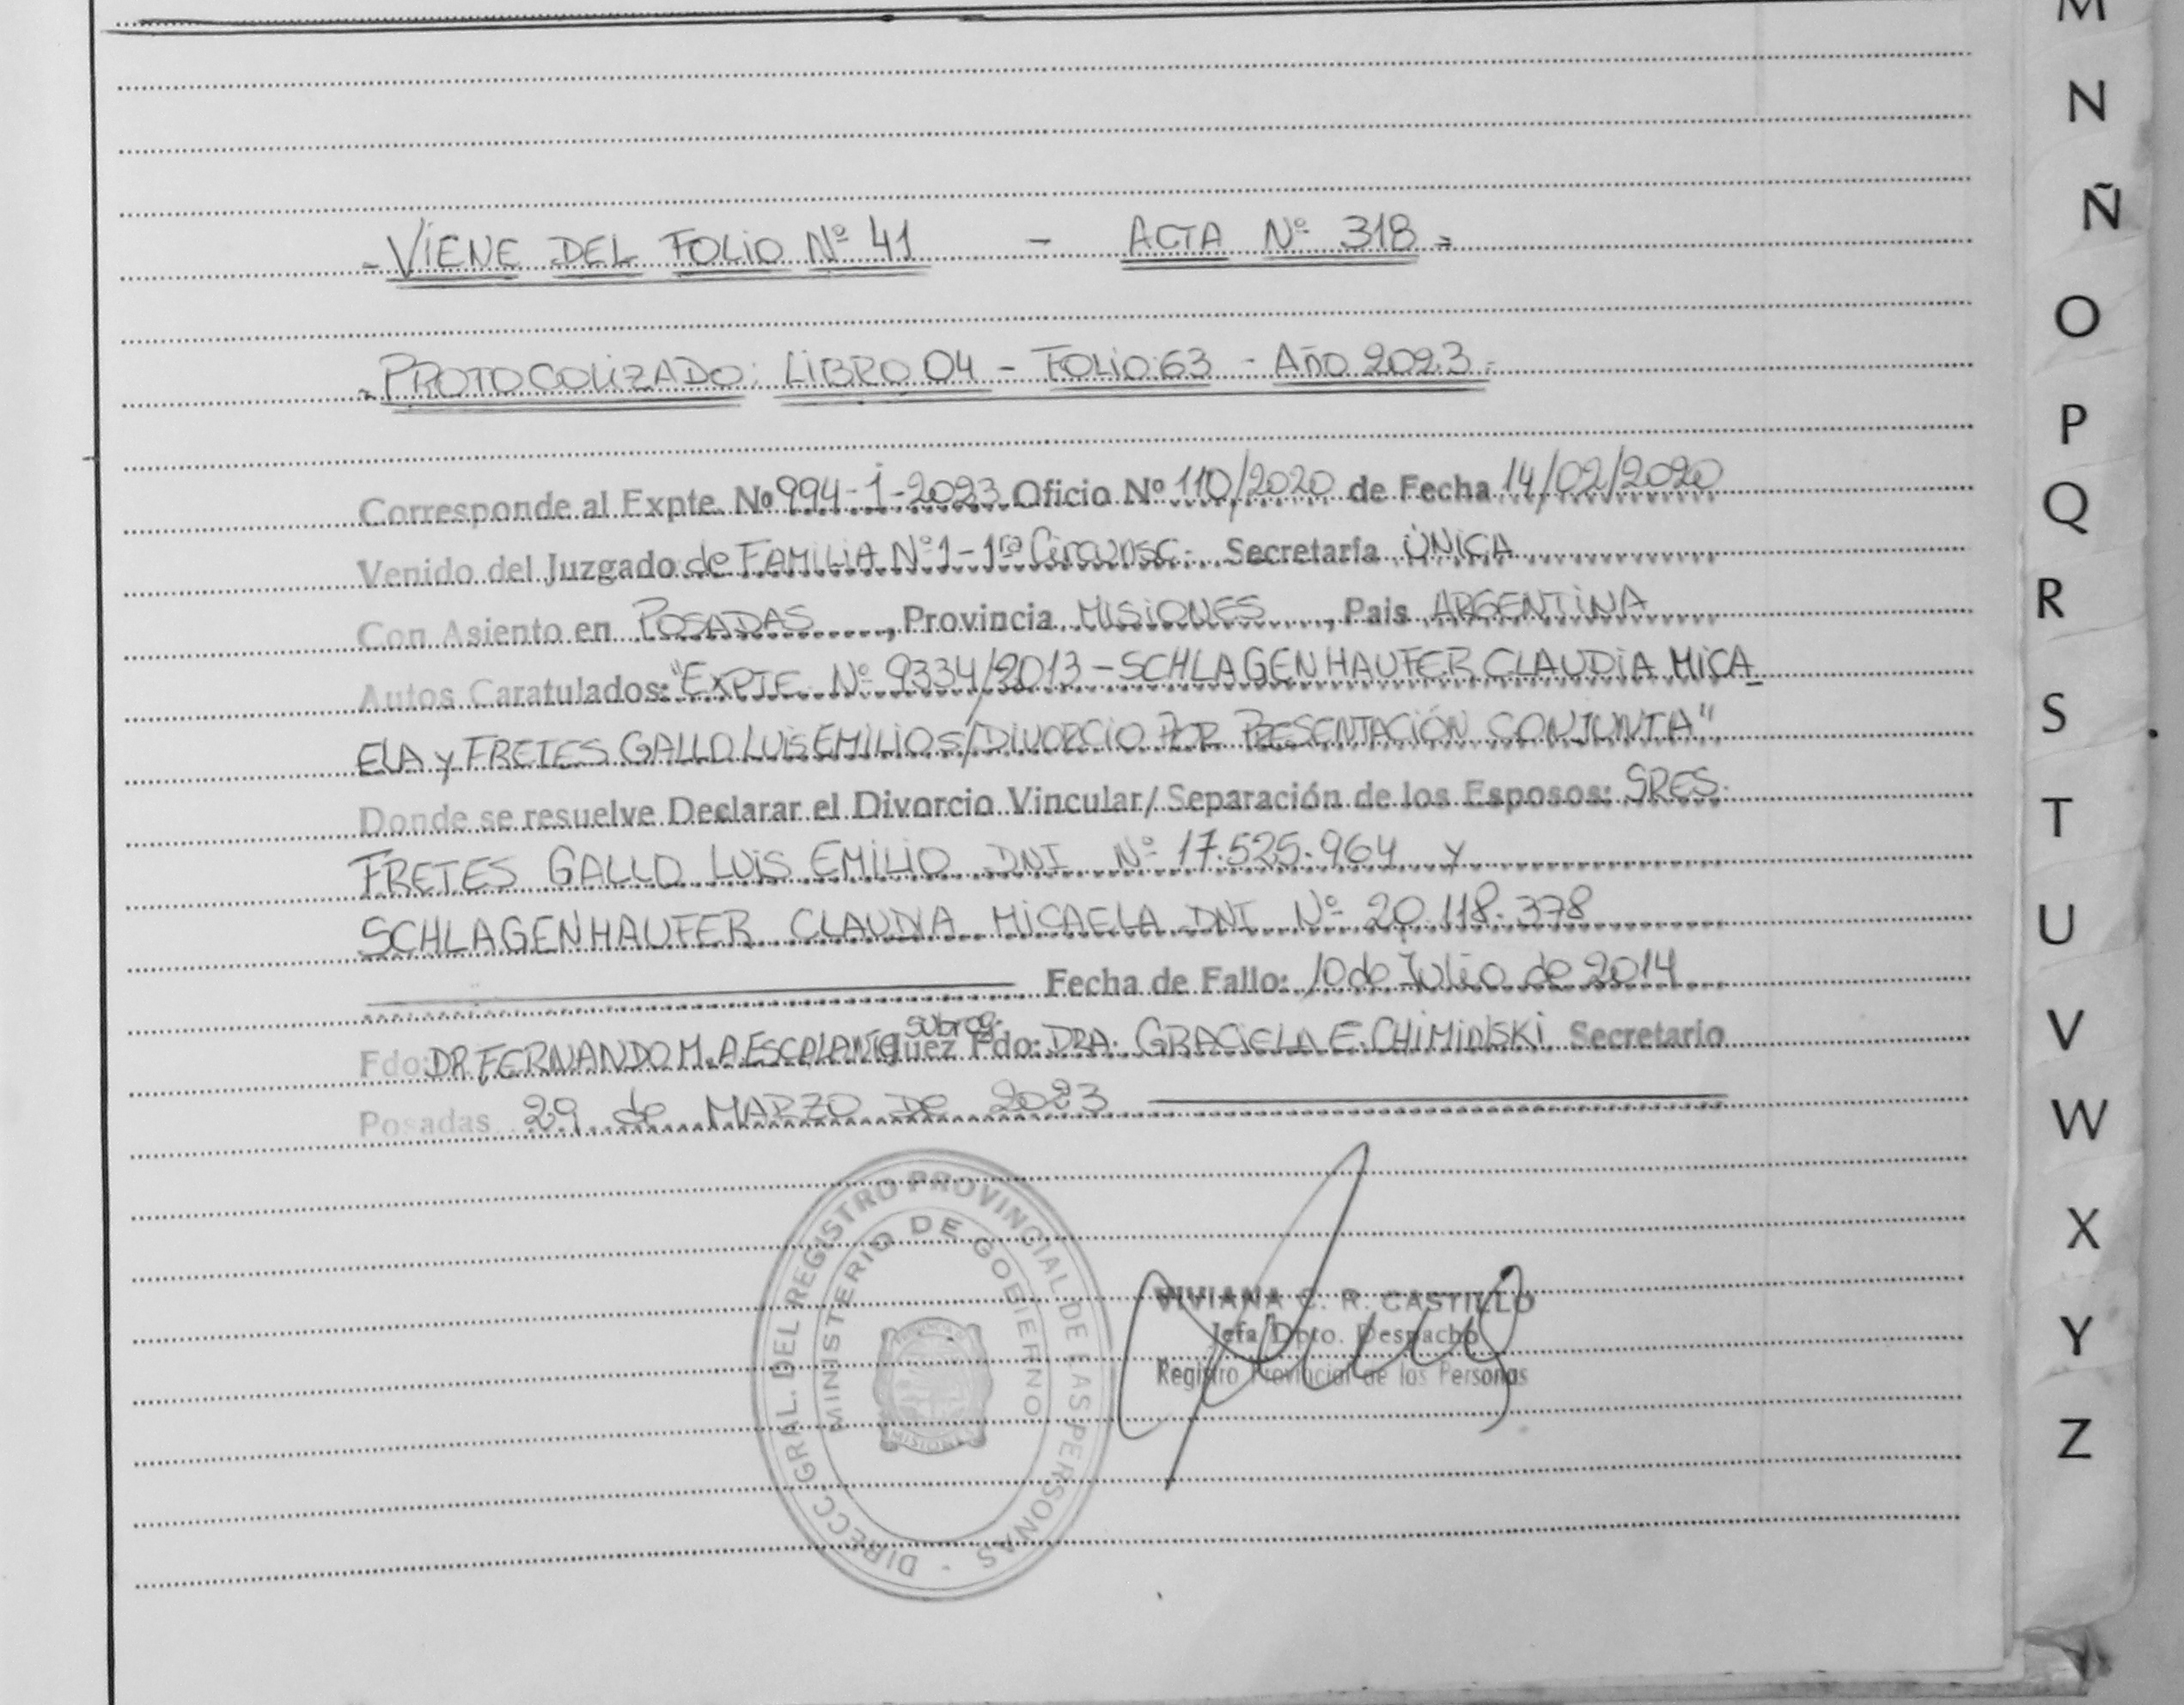 - VIENE DEL FOLIO Nº 41 - ACTA Nº 318 =
- PROTOCOLIZADO: LIBRO 04 - FOLIO: 63 - AÑO 2023.-
Corresponde al Expte. Nº 994-J-2023 Oficio Nº 110/2020 de Fecha 14/02/2020
Venido del Juzgado de FAMILIA Nº 1 - 1ra Circunsc. Secretaría ÚNICA
Con Asiento en POSADAS, Provincia MISIONES, Pais ARGENTINA
Autos Caratulados: "EXPTE. Nº 9334/2013 - SCHLAGENHAUFER CLAUDIA MICA_
ELA y FRETES GALLO LUIS EMILIO S/DIVORCIO POR PRESENTACIÓN CONJUNTA"
Donde se resuelve Declarar el Divorcio Vincular/ Separación de los Esposos: SRES.
FRETES GALLO LUIS EMILIO DNI Nº 17.525.964 y
SCHLAGENHAUFER CLAUDIA MICAELA DNI Nº 20.118.378
Fecha de Fallo: 10 de Julio de 2014
Fdo: DR. FERNANDO M. A. ESCALANTE Juez subrog. Fdo: DRA. GRACIELA E. CHIMINSKI Secretario
Posadas 29 de MARZO DE 2023
DIRECC. GRAL. DEL REGISTRO PROVINCIAL DE LAS PERSONAS -
MINISTERIO DE GOBIERNO
MISIONES
VIVIANA C. R. CASTILLO
Jefa Dpto. Despacho
Registro Provincial de las Personas
M
N
Ñ
O
P
Q
R
S
T
U
V
W
X
Y
Z